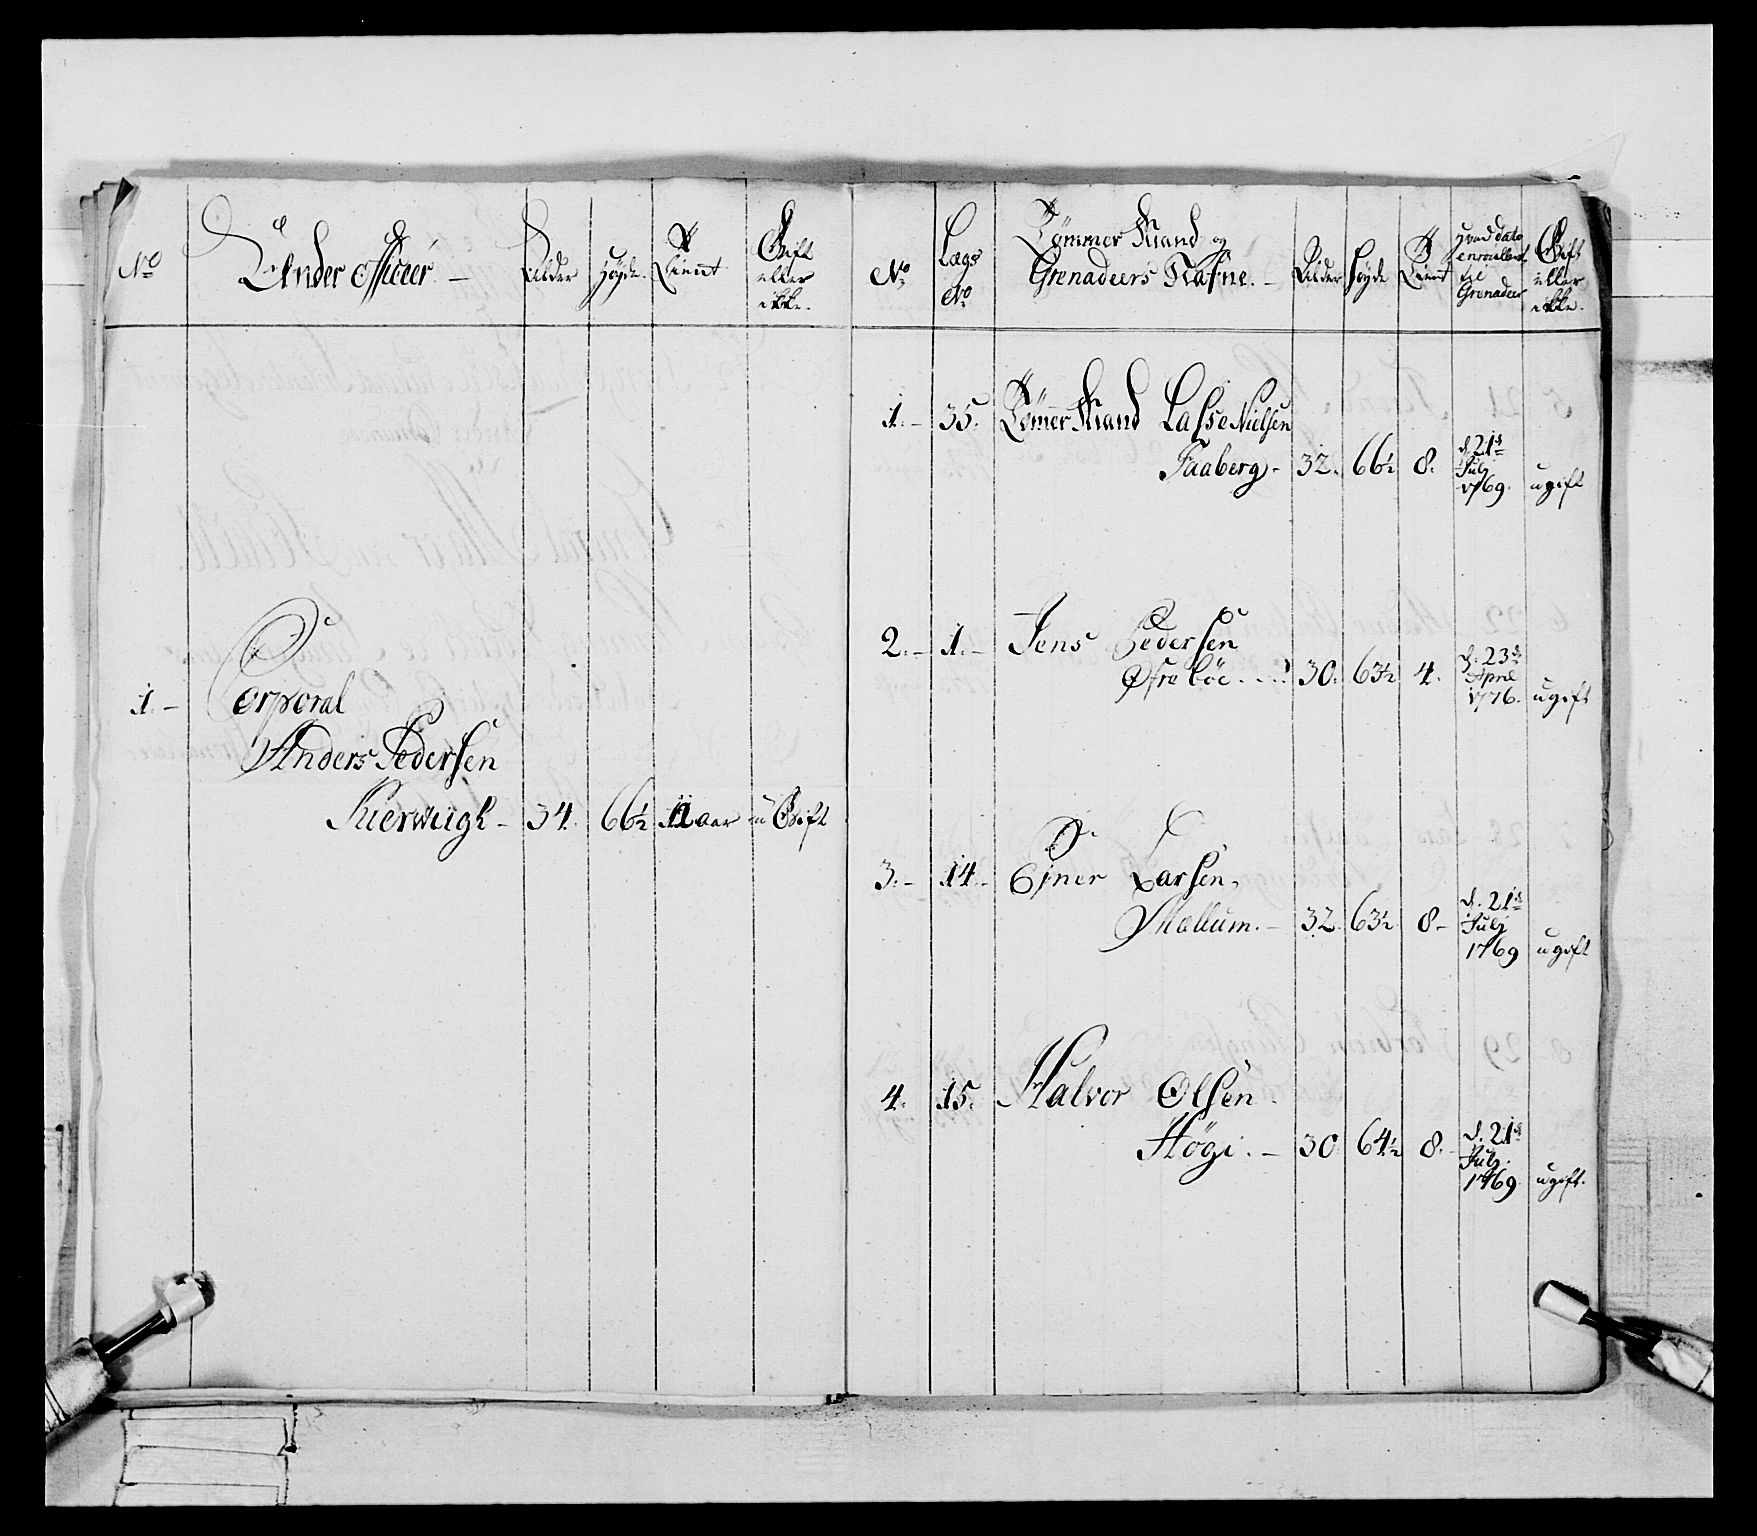 No
Under Officeer. –
Alder
Høyde.
Tient
Gift
eller
ikke.
1. –
Corporal
Anders Pedersen
34.
66½
11 aar
u Gift
No
Lægs
No
Tømmer Mand og
Grenadeers Nafne. –
Alder
Høyde
Tient
Hvad dato
enroullert
til
Grenadeer
Gift
eller
ikke.
1. –
35.
Tømer Mand Lasse Nielsen
Faaberg –
32.
66½
8.
d. 21de
Julj
1769.
ugift
2. –
1. –
Jens Pedersen
30.
63½
4.
d. 23de
April
1776.
ugift
3. –
14 –
Ejner Larsen,
Mællum. –
32
63½
8 –
d. 21de
Julj
1769
ugift
4.
15.
Halvor Olsen.
Høgi. –
30
64½
8.
d. 21de
Julj.
1769
ugift.